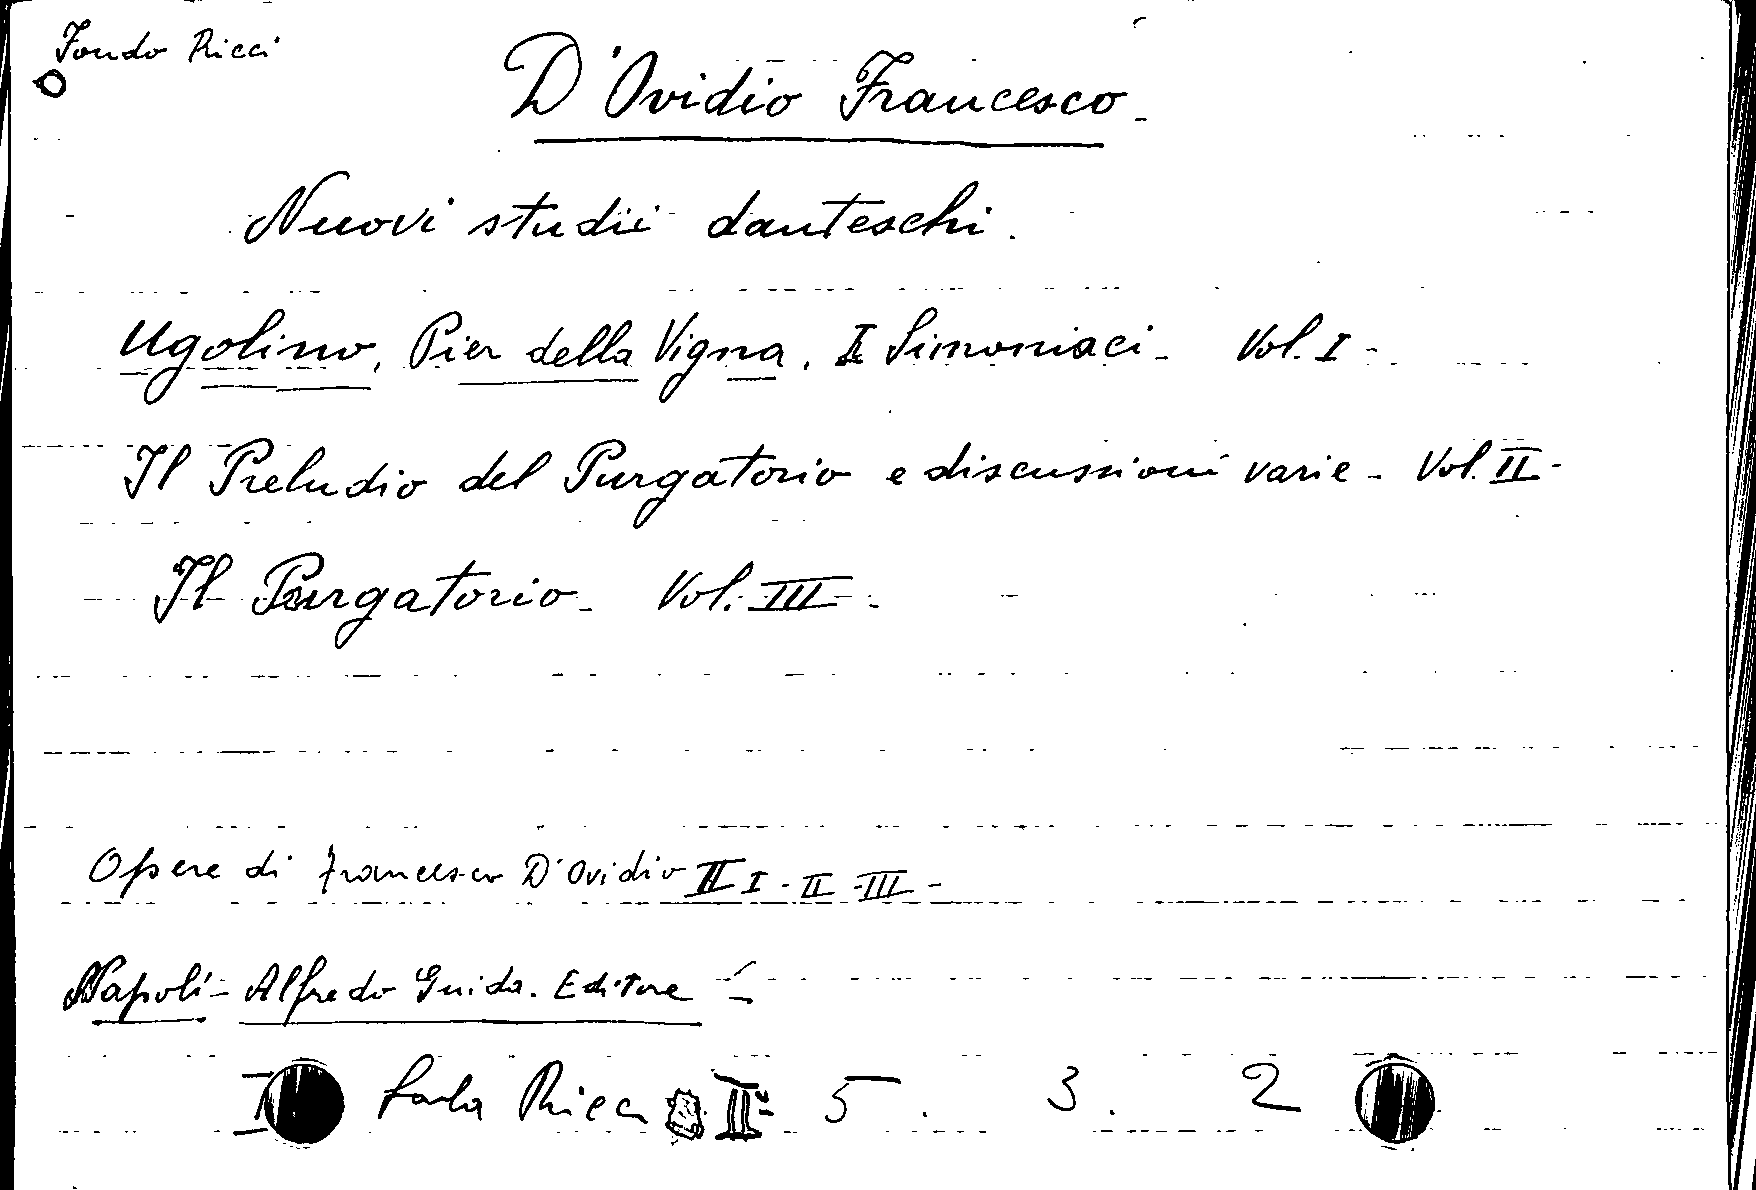 Fondo Ricci
D'Ovidio Francesco -
Nuovi studii danteschi.
Ugolino, Pier della Vigna, I Simoniaci - Vol. I -
Il Preludio del Purgatorio e discussioni varie - Vol. II -
Il Purgatorio - Vol. III -
Opere di Francesco D'Ovidio II I - II - III -
Napoli - Alfredo Guida. Editore -
Sala Ricci II 5. 3. 2